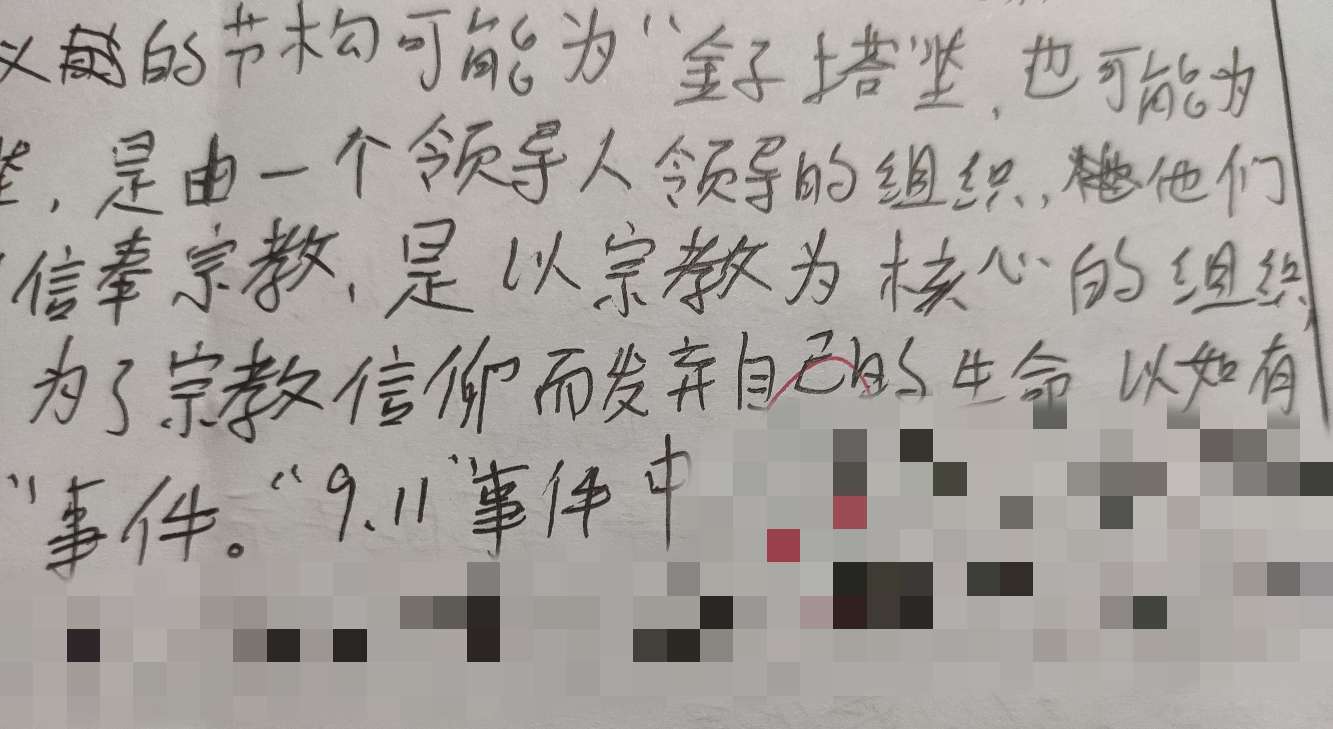 义的节构可能为“金子塔”坐,也可能为
,是由一个领导人领导的组织,他们
信奉宗教,是以宗教为核心的组织,
为了宗教信仰而发弃自己的生命以如有
”事件。“9.11”事件中